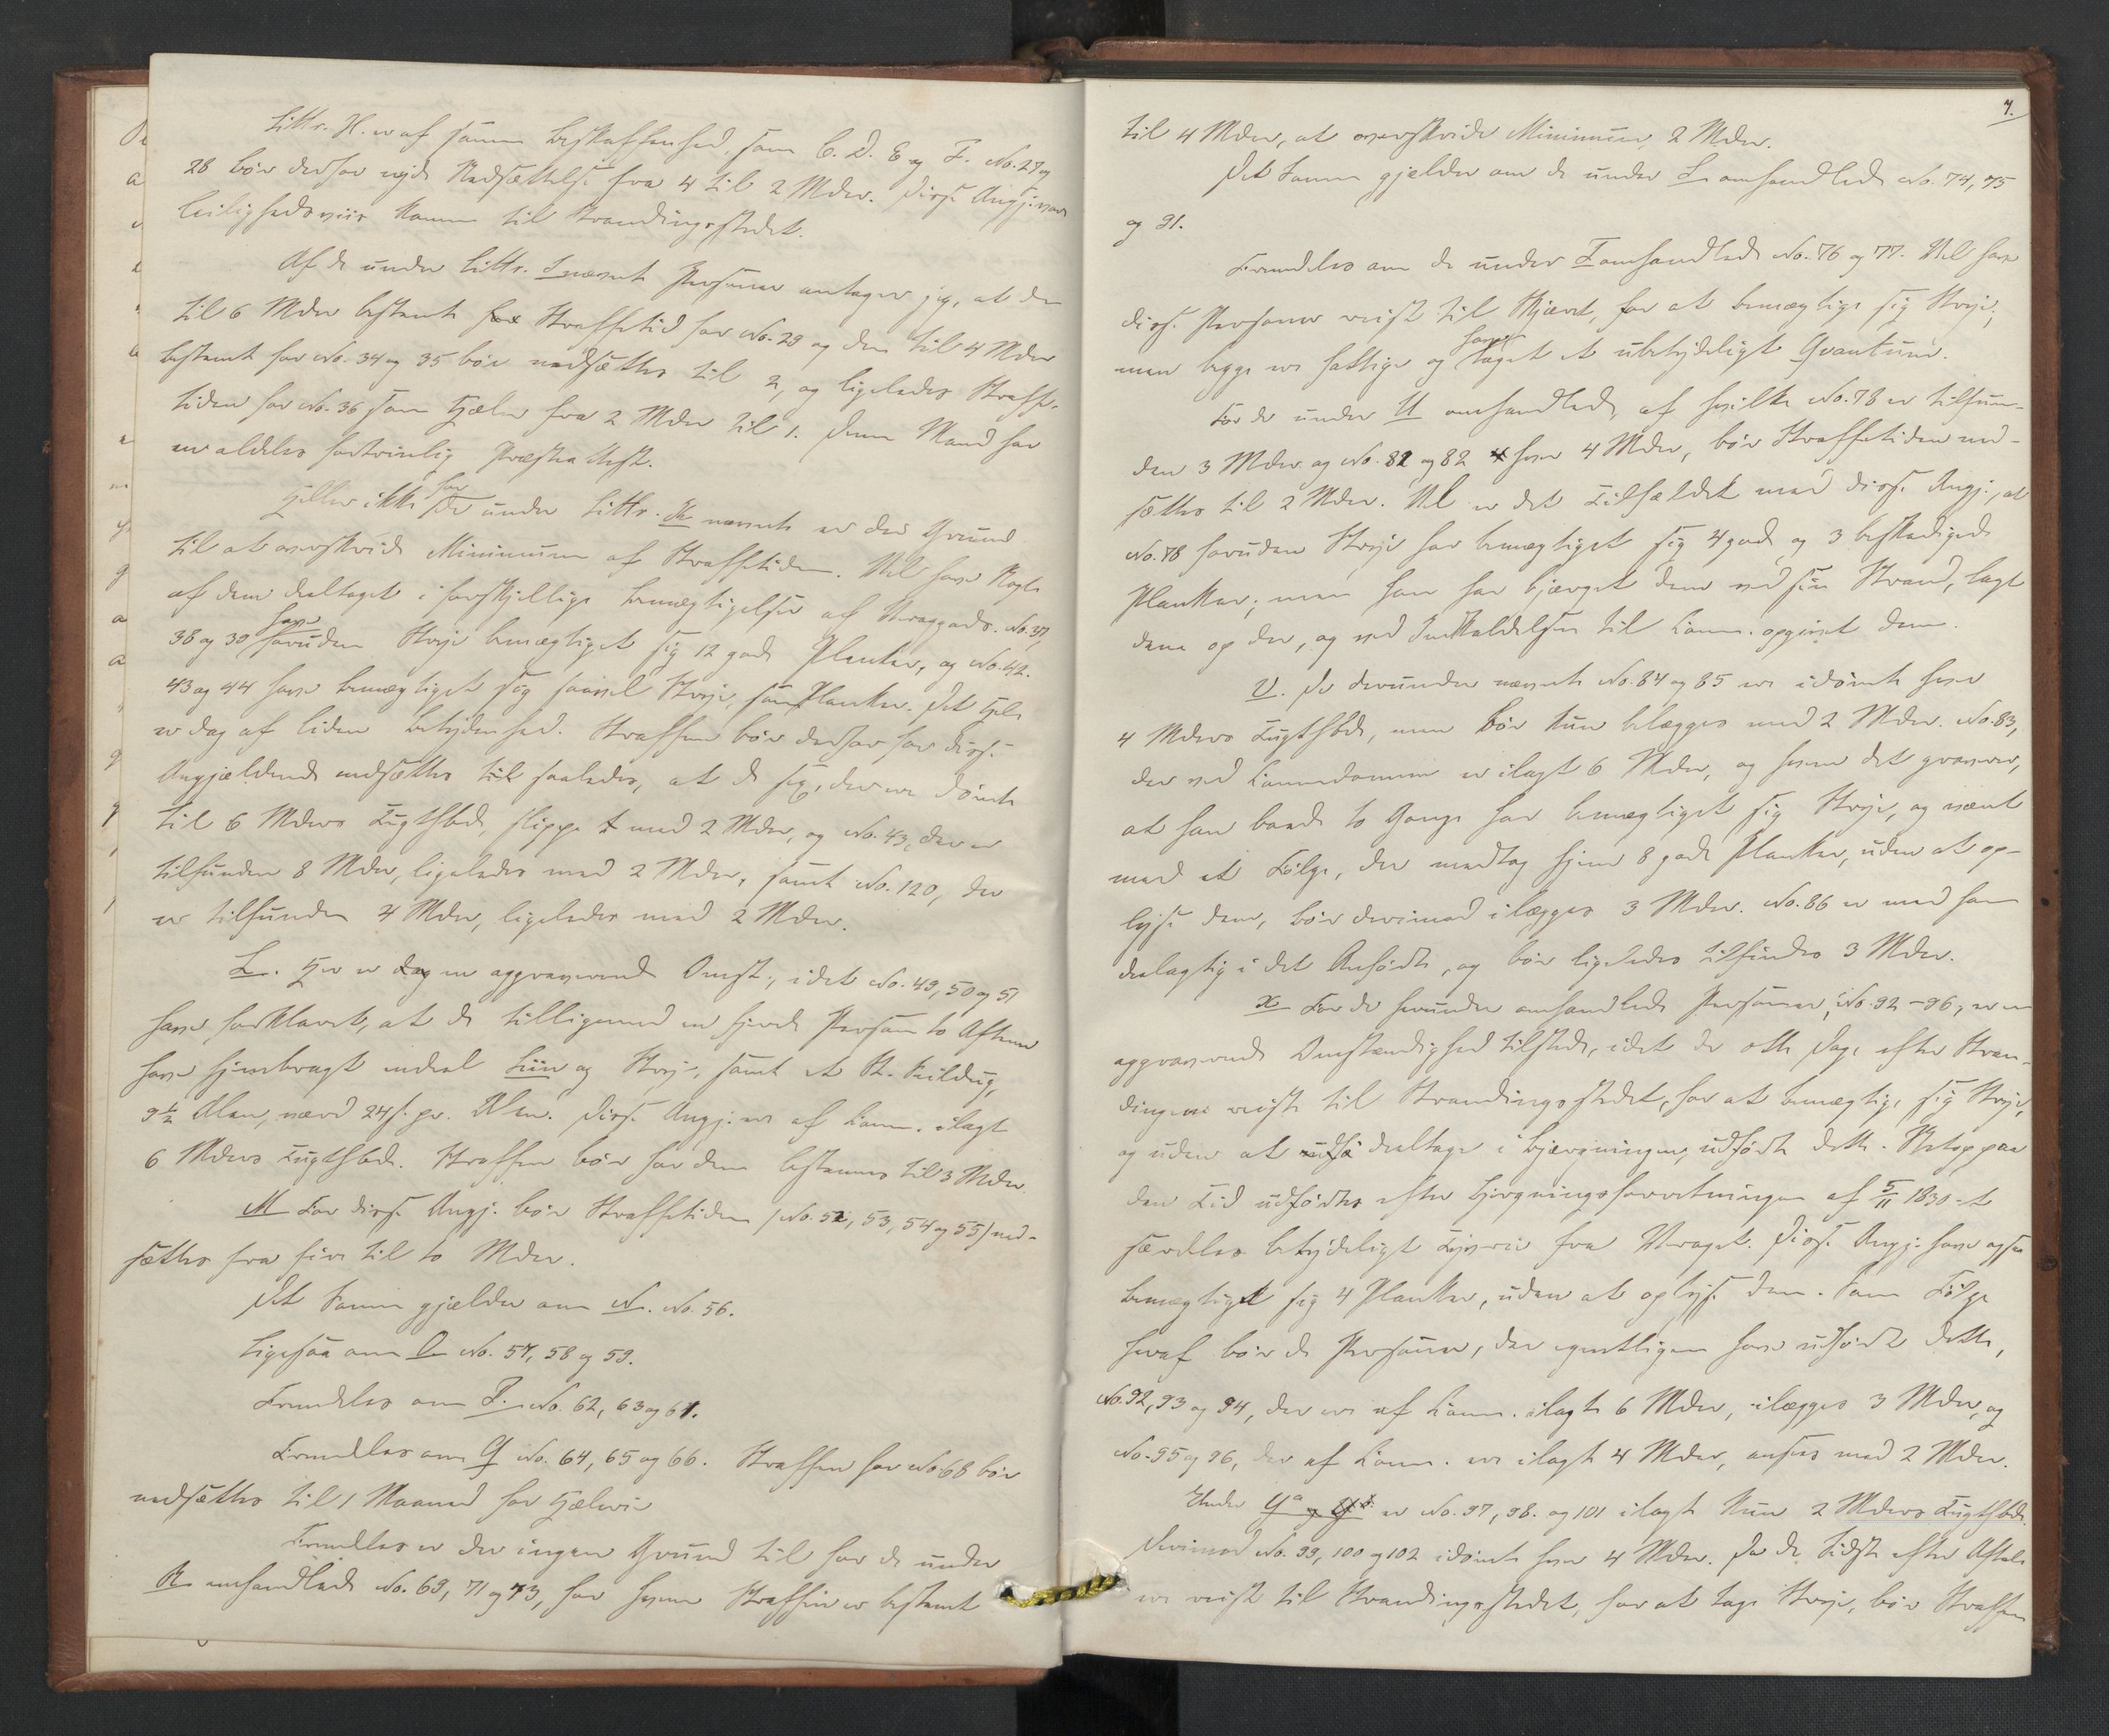 Littr. H. er af samme Beskaffenhed, som C. D. E og F. No. 27 og
28 bør derfor nyde Nedsættelse fra 4 til 2 Mdr. Disse Angj. vare
leilighedsviis komne til Strandingsstedet.
Af de under Littr. I nævnte Personer antager jeg, at den
til 6 Mdr bestemte Straffetid for No. 29 og den til 4 Mdr
bestemt for No. 34 og 35 bør nedsættes til 2, og ligeledes Straffe-
tiden for No. 36 som Hæler fra 2 Mdr til 1. Denne Mand har
en aldeles fortrinlig Præsteattest.
Heller ikke for de under Littr. K nævnte er der Grund
til at overskride Minimum af Straffetiden. Vel have Nogle
af dem deeltaget i forskjellige Bemægtigelser af Vraggods. No. 37,
38 og 39 have foruden Strye bemægtiget sig 12 gode Planker, og No. 42.
43 og 44 have bemægtiget sig saavel Strye, som Planker. Det Hele
er dog af liden Betydenhed. Straffen bør derfor for disse
Angjældende nedsættes til saaledes, at de sex, der ere dømte
til 6 Mdrs Tugthbde, slippe med 2 Mdr, og No. 43, der er
tilfunden 8 Mdr, ligeledes med 2 Mdr, samt No. 120, der
er tilfunden 4 Mdr, ligeledes med 2 Mdr.
L. Her er dog en aggraverende Omst., idet No. 49, 50 og 51
have forklaret, at de tilligemed en fjerde Person to Aftener
have hjembragt endeel Liin og Strye, samt et St. Seildug,
9½ Alen, værd 24 s. pr. Alen. Disse Angj. ere af Comm. ilagt
6 Mdrs Tugthbde. Straffen bør for dem bestemmes til 3 Mdr.
M For disse Angj. bør Straffetiden /No. 52, 53, 54 og 55/ ned-
sættes fra fire til to Mdr.
Det Samme gjælder om N. No. 56.
Ligesaa om O No. 57, 58 og 59.
Fremdeles om P. No. 62, 63 og 61.
Fremdeles om Q No. 64, 65 og 66. Straffen for No 68 bør
nedsættes til 1 Maaned for Hæleri
Fremdeles er der ingen Grund til for de under
R omhandlede No. 69, 71 og 73, for hvem Straffen er bestemt
7.
til 4 Mdr, at overskride Minimum, 2 Mdr.
Det Samme gjælder om de under S omhandlede No. 74, 75
og 91.
Fremdeles om de under T omhandlede No. 76 og 77. Vel have
disse Personer reist til Skjæret, for at bemægtige sig Strye,
men begge ere fattige og have taget et ubetydeligt Qvantum.
For de under U omhandlede, af hvilke No. 78 er tilfun-
den 3 Mdr og No. 81 og 82 hver 4 Mdr, bør Straffetiden ned-
sættes til 2 Mdr. Vel er det Tilfældet med disse Angj., at
No. 78 foruden Strye har bemægtiget sig 4 gode og 3 beskadigede
Planker; men han har bjærget dem ved sin Strand, lagt
dem op der, og ved Indkaldelsen til Comm. opgivet dem.
V. De derunder nævnte No. 84 og 85 ere idømte hver
4 Mdrs Tugthbde, men bør kun belægges med 2 Mdr. No. 83,
der ved Commdommen er ilagt 6 Mdr, og hvem det graverer,
at han baade to Gange har bemægtiget sig Strye, og været
med et Følge, der medtog hjem 8 gode Planker, uden at op-
lyse dem, bør derimod ilægges 3 Mdr. No. 86 er med ham
delagtig i det Anførte, og bør ligeledes tilfindes 3 Mdr.
X For de herunder omhandlede Personer, No. 92-96, er en
aggraverende Omstændighed tilstede, idet de otte Dage efter Stran-
dingen reiste til Strandingsstedet, for at bemægtige sig Strye,
og uden at deeltage i Bjærgningen, udførte dette. Netop paa
den Tid udførtes efter Bjergningsforretningen af 5/11 1830 et
særdeles betydeligt Tyverie fra Vraget. Disse Angj. have ogsaa
bemægtiget sig 4 Planker, uden at oplyse dem. Som Følge
heraf bør de Personer, der egentligen have udført dette,
No. 92, 93 og 94, der ere af Comm. ilagt 6 Mdr, ilægges 3 Mdr, og
No. 95 og 96, der af Comm. ere ilagt 4 Mdr, ansees med 2 Mdr.
Under Y a er No. 97, 98. og 101 ilagt kun 2 Mdrs Tugthbde.
Derimod No. 99, 100 og 102 idømte hver 4 Mdr. Da de Sidste efter Aftale
ere reist til Strandingsstedet, for at tage Strye, bør Straffen